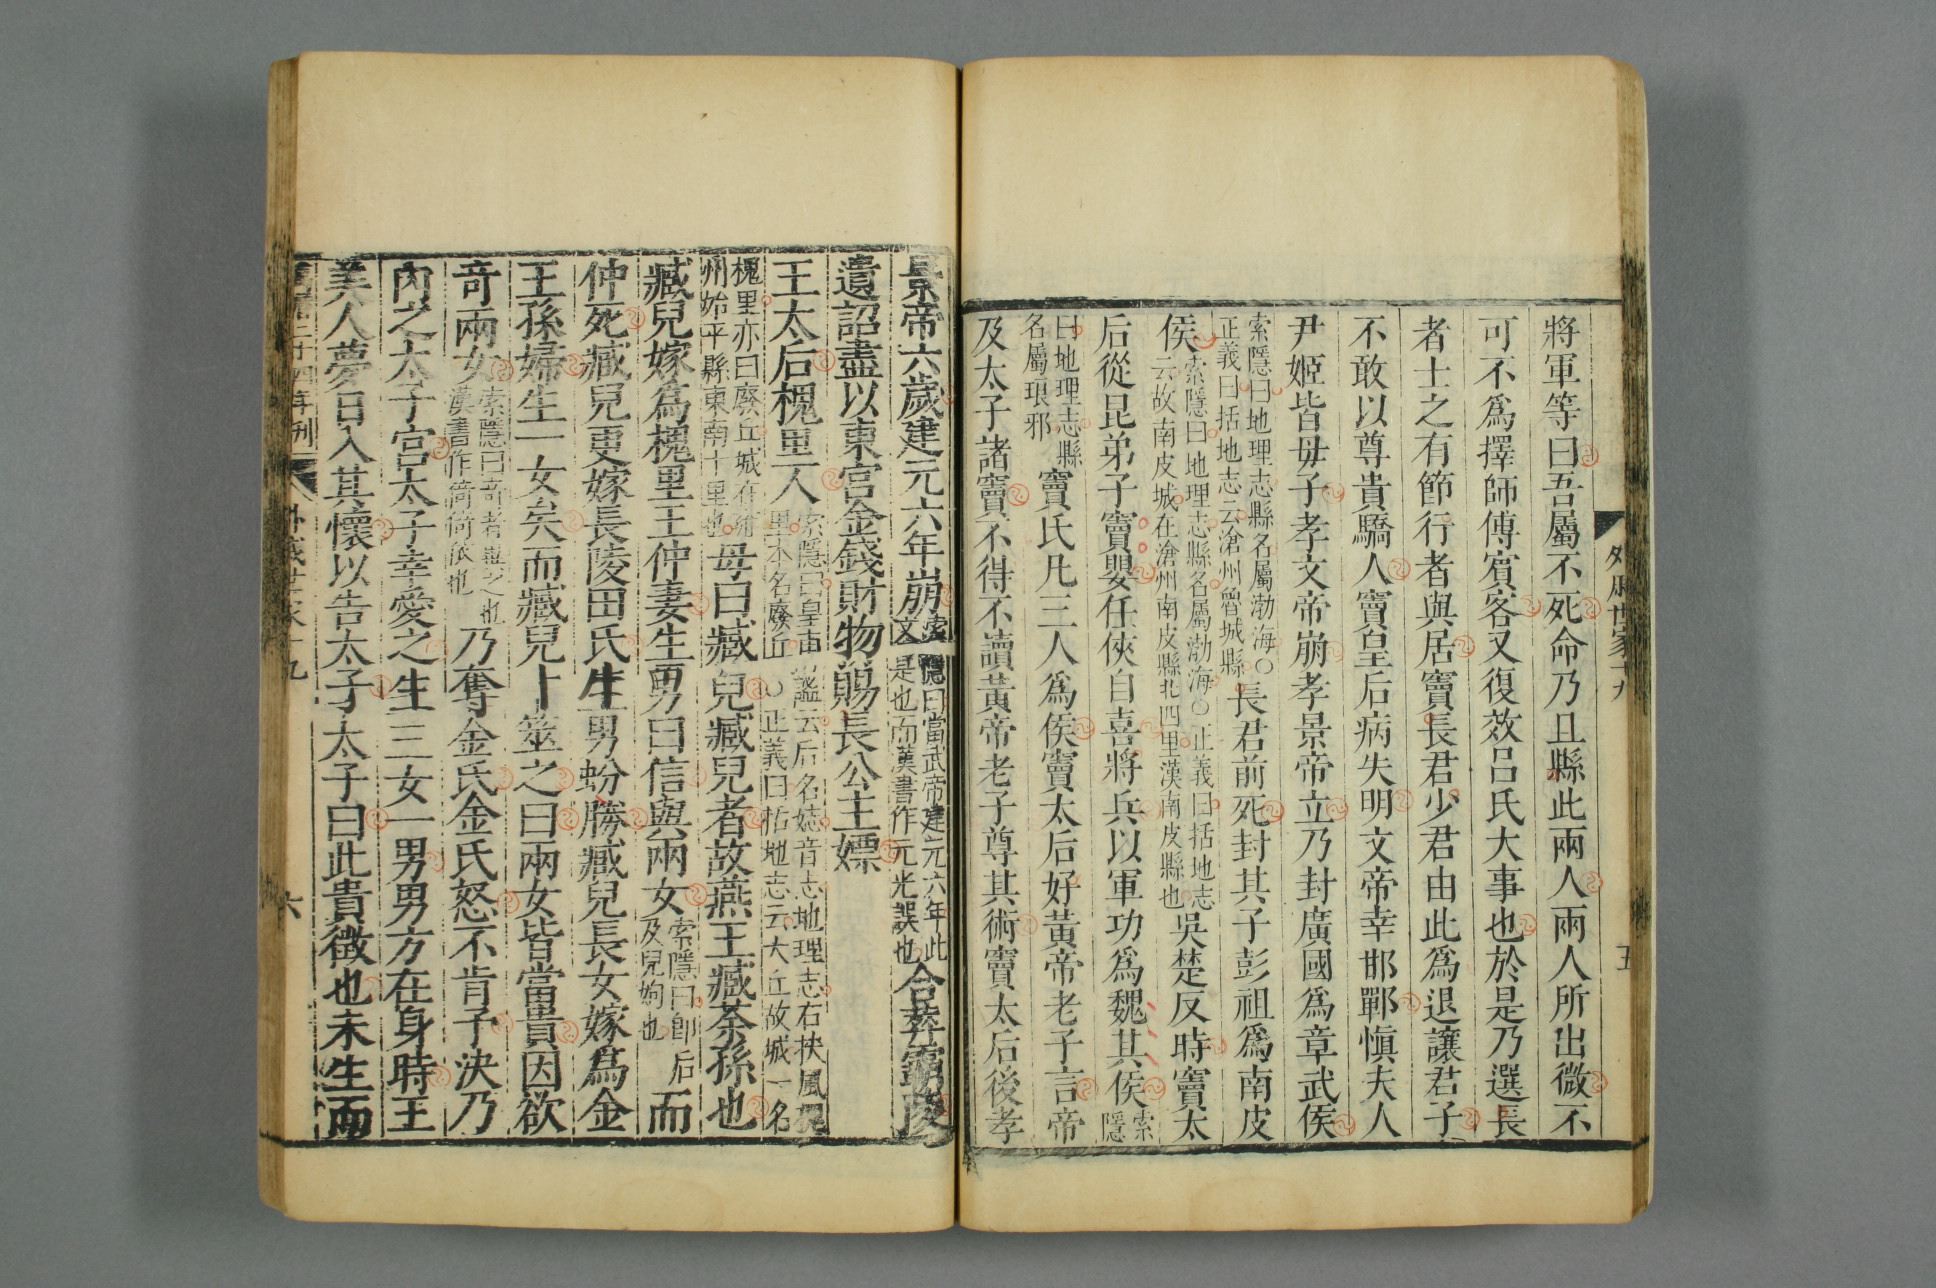 外戚世家十九
五
將軍等曰吾屬不死命乃且縣此兩人兩人所出微不
可不爲擇師傅賓客又復效呂氏大事也於是乃選長
者士之有節行者與居竇長君少君由此爲退讓君子
不敢以尊貴驕人竇皇后病失明文帝幸邯鄲愼夫人
尹姬皆毋子孝文帝崩孝景帝立乃封廣國爲章武侯
索隱曰地理志縣名屬渤海○
正義曰括地志云滄州魯城縣
長君前死封其子彭祖爲南皮
侯
索隱曰地理志縣名屬渤海○正義曰括地志
云故南皮城在滄州南皮縣北四里漢南皮縣也
吳楚反時竇太
后從昆弟子竇嬰任俠自喜將兵以軍功爲魏其侯
索
隱
曰地理志縣
名屬琅邪
竇氏凡三人爲侯竇太后好黃帝老子言帝
及太子諸竇不得不讀黃帝老子尊其術竇太后後孝
景帝六歲建元六年崩
索隱曰當武帝建元六年此
文是也而漢書作元光誤也
合葬霸陵
遺詔盡以東宮金錢財物賜長公主嫖
王太后槐里人
索隱曰皇甫謐云后名娡音志地理志右扶風槐
里本名廢丘○正義曰括地志云犬丘故城一名
槐里亦曰廢丘城在雍
州始平縣東南十里也
母曰臧兒臧兒者故燕王臧荼孫也
臧兒嫁爲槐里王仲妻生男曰信與兩女
索隱曰卽后
及兒姁也
而
仲死臧兒更嫁長陵田氏生男蚡勝臧兒長女嫁爲金
王孫婦生一女矣而臧兒卜筮之曰兩女皆當貴因欲
奇兩女
索隱曰奇者異之也
漢書作倚倚依也
乃奪金氏金氏怒不肯予決乃
內之太子宮太子幸愛之生三女一男男方在身時王
美人夢日入其懷以告太子太子曰此貴徵也未生而
二十四年刊
外戚世家十九
六